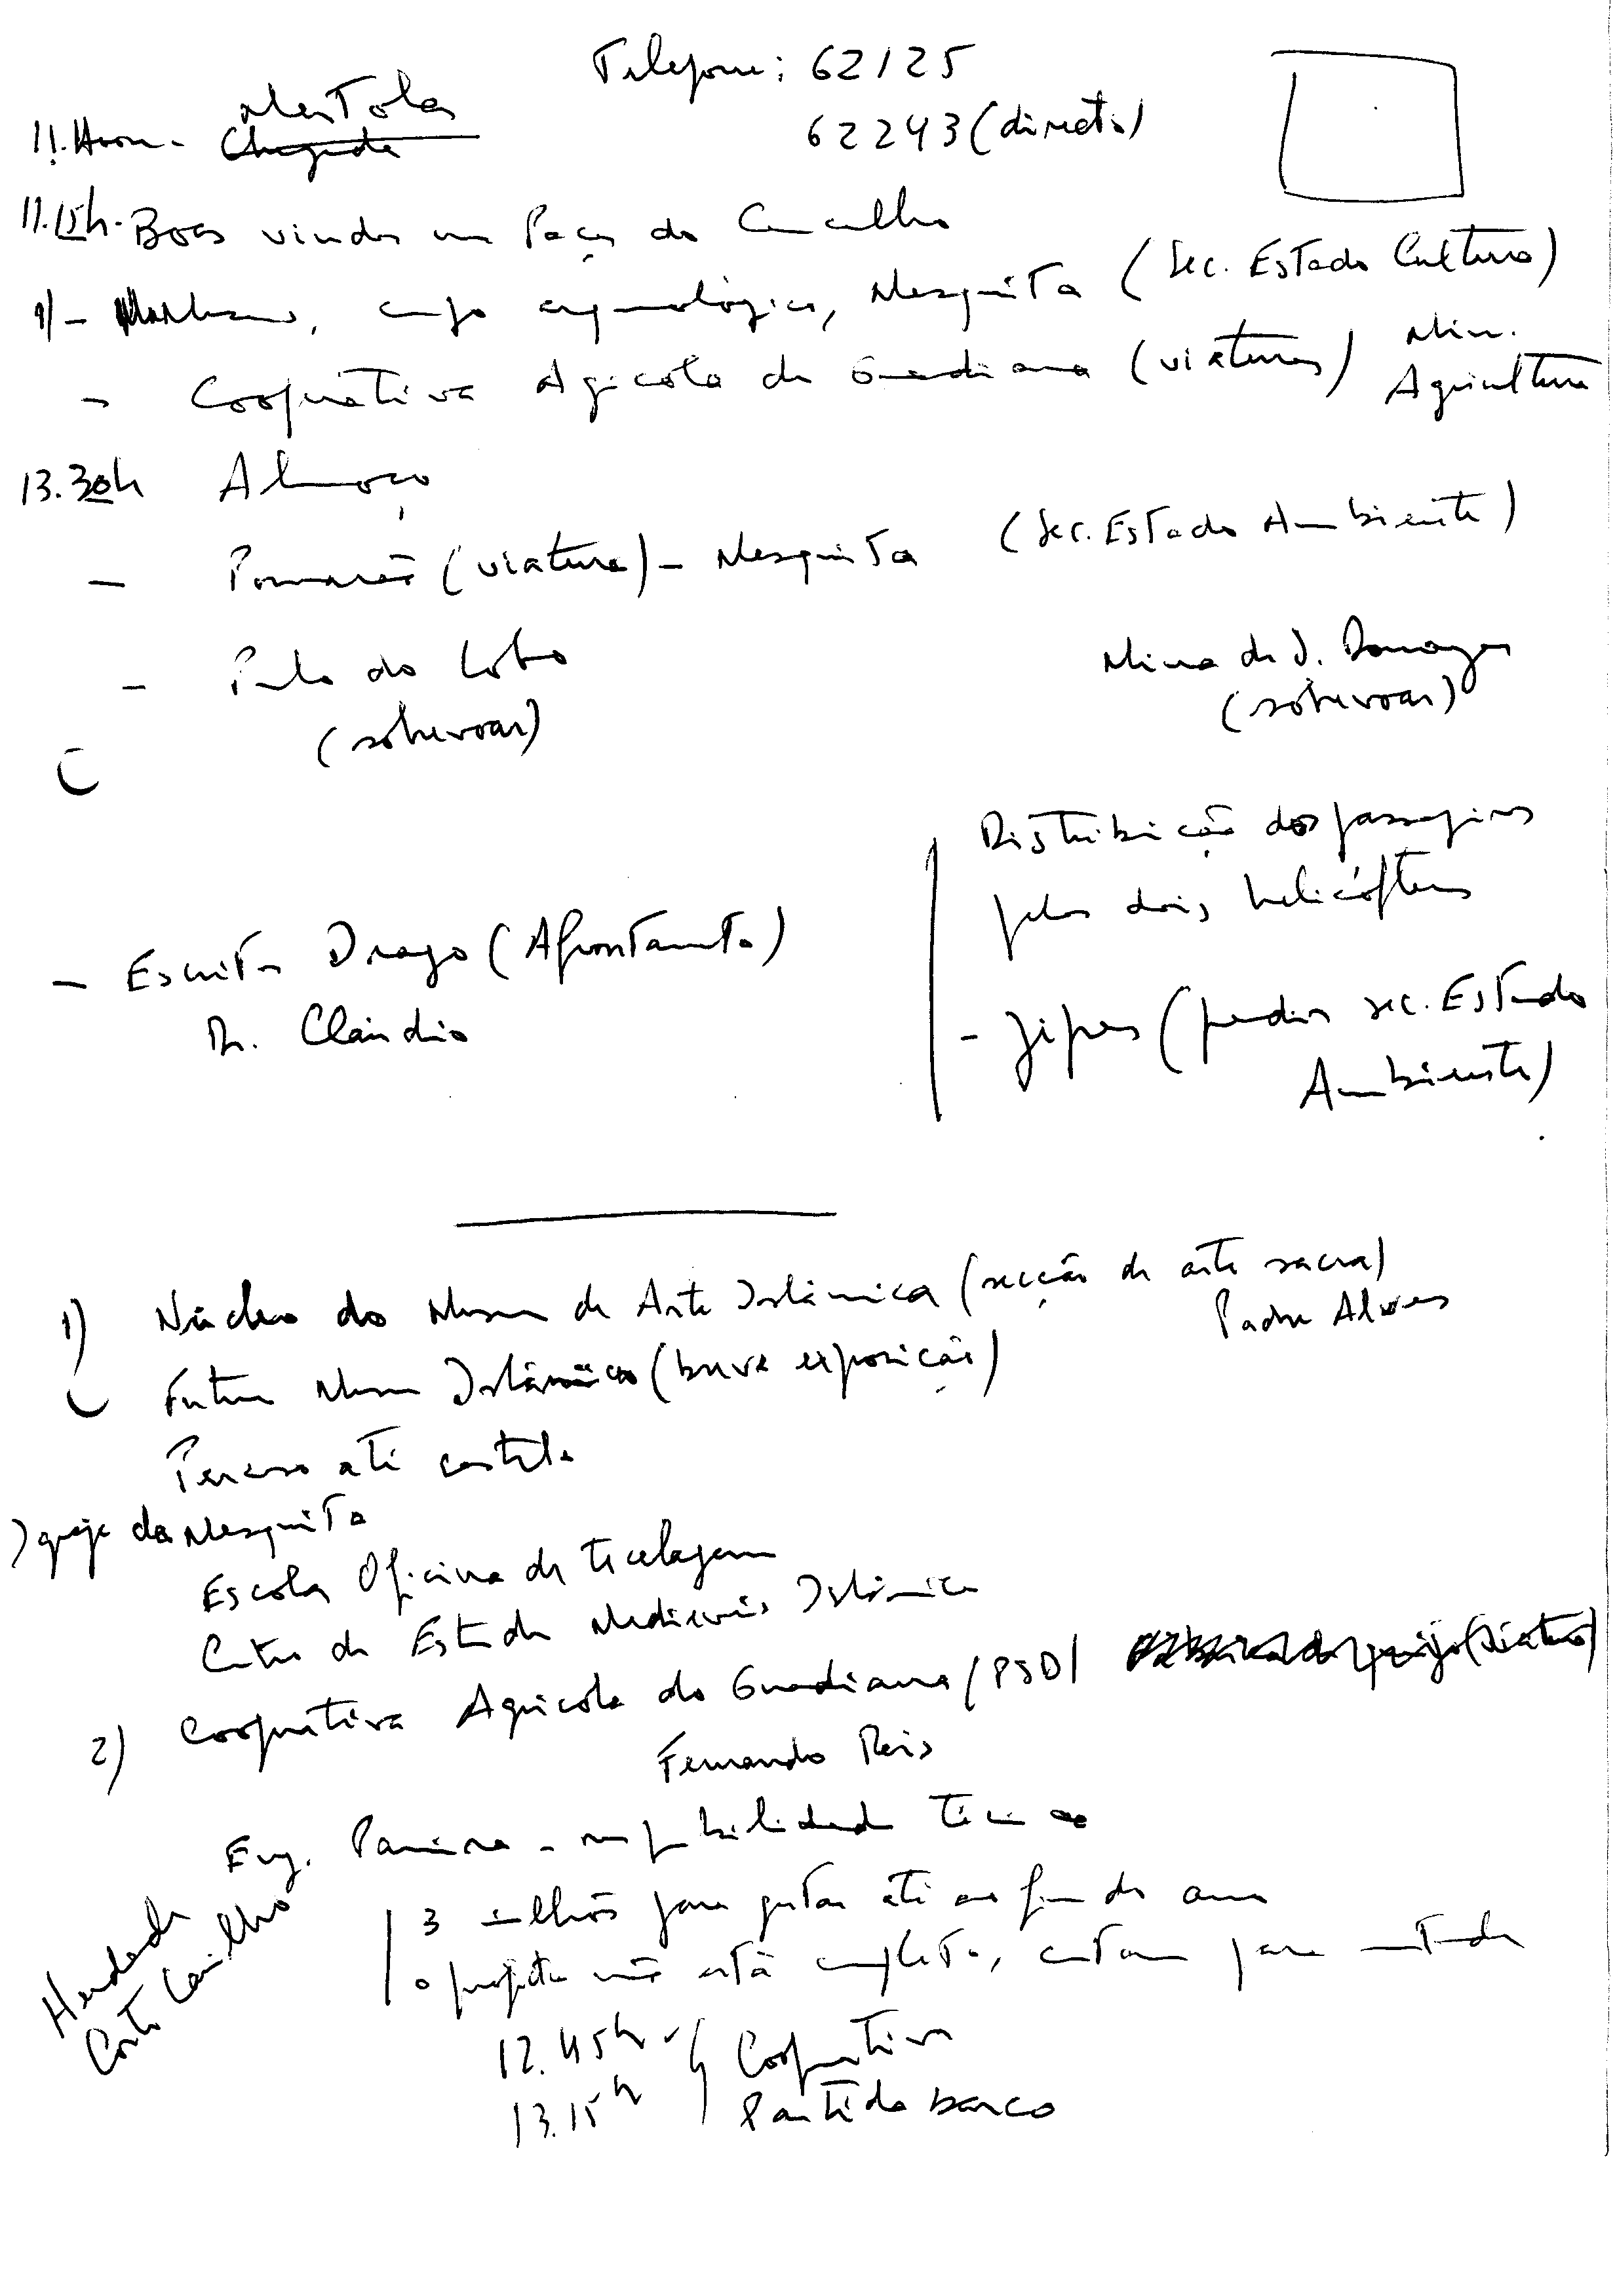 Telefone: 62125
62243 (directo)
Mertola
11. Horas - Chegada
11.15h. Boas vindas nos Paços do Concelho
1) - campo arqueológico, Mesquita (Sec. Estado Cultura)
- Cooperativa Agrícola do Guadiana (viaturas) Min. Agricultura
13.30h Almoço
- Pomarão (viatura) - Mesquita (Sec. Estado Ambiente)
- Pulo do Lobo
(sobrevoar)
Mina de S. Domingos
(sobrevoar)
Distribuição dos passageiros
pelos dois helicópteros
- Jipes (pedir sec. Estado
Ambiente)
- Escritor Drago (Afrontamento)
Dr. Cláudio
1) Núcleo do Museu de Arte Islâmica (secção de arte sacra)
Padre Alves
Futuro Museu Islâmico (breve exposição)
Percurso até castelo
Igreja da Mesquita
Escola Oficina de tecelagem
Centro de Estudos Medievais Islâmicos
2) Cooperativa Agrícola do Guadiana (PSD)
Fernando Reis
Eng. - responsabilidade técnica
3 milhões para gastar até ao fim do ano
o projecto não está completo, contam para
Herdade
Corte
12.45h - Cooperativa
13.15h Partida barco